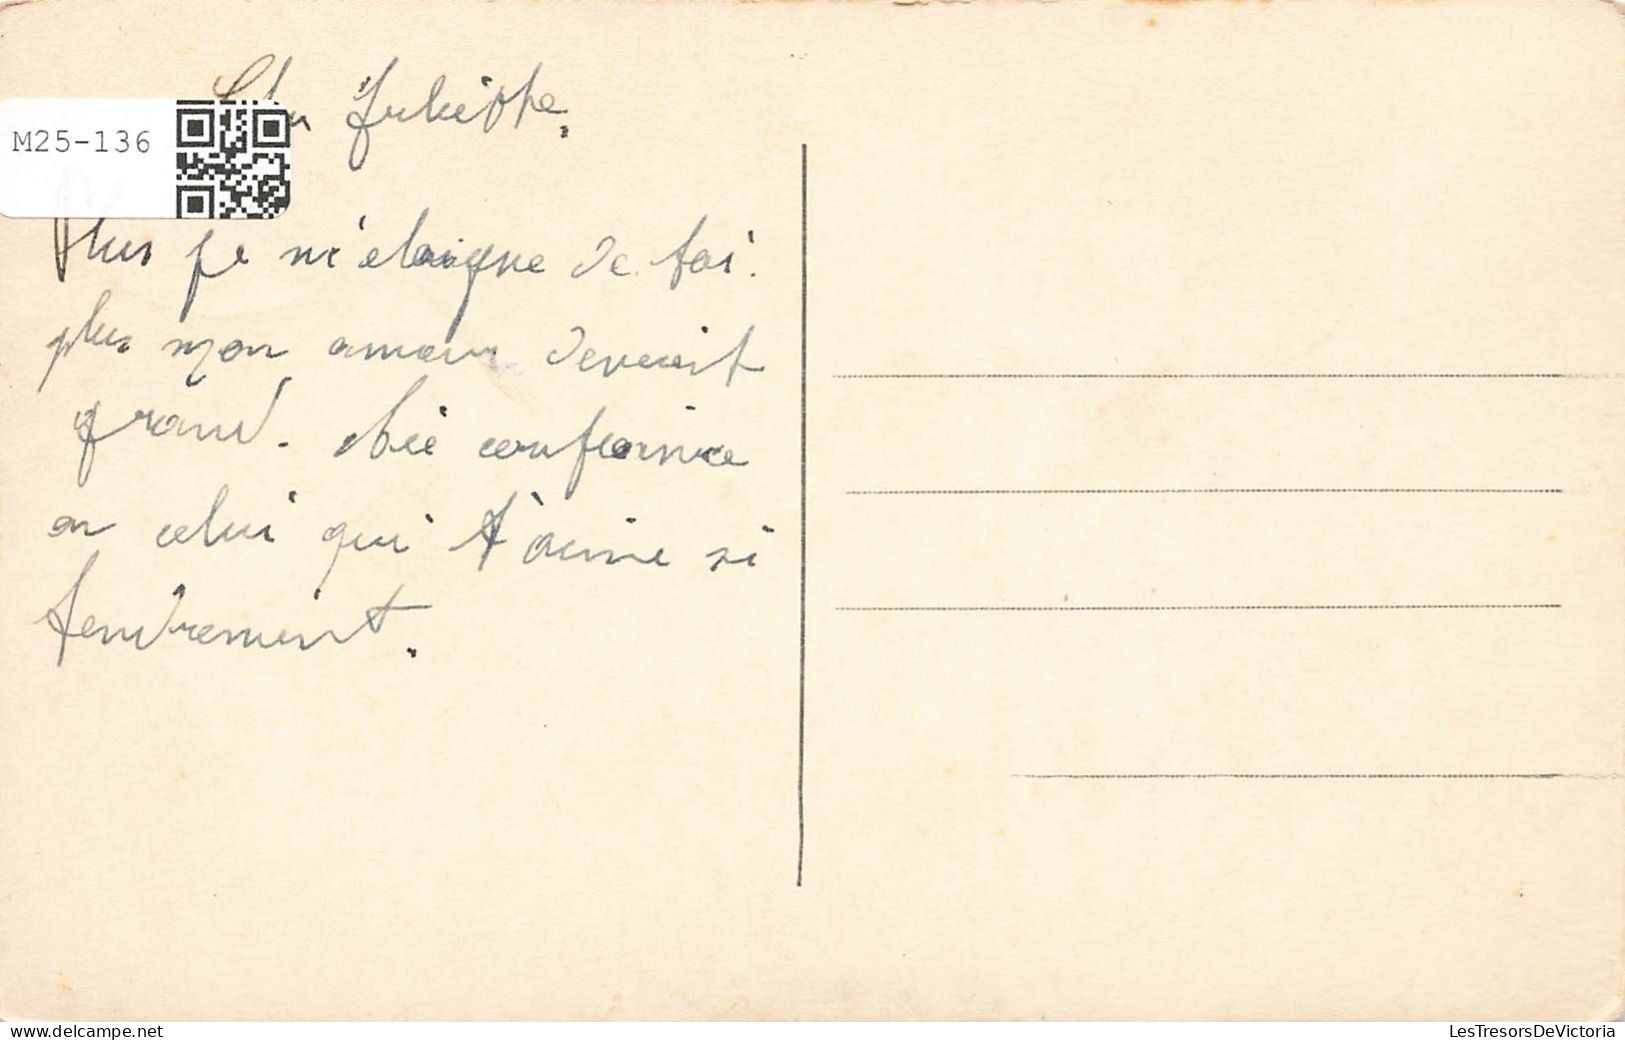 M25-136
Juliette.
Plus je m'eloigne de toi.
plus mon amour devient
grand. Aie confiance
en celui qui t'aime si
tendrement.
delcampe.net
LesTresorsDeVictoria